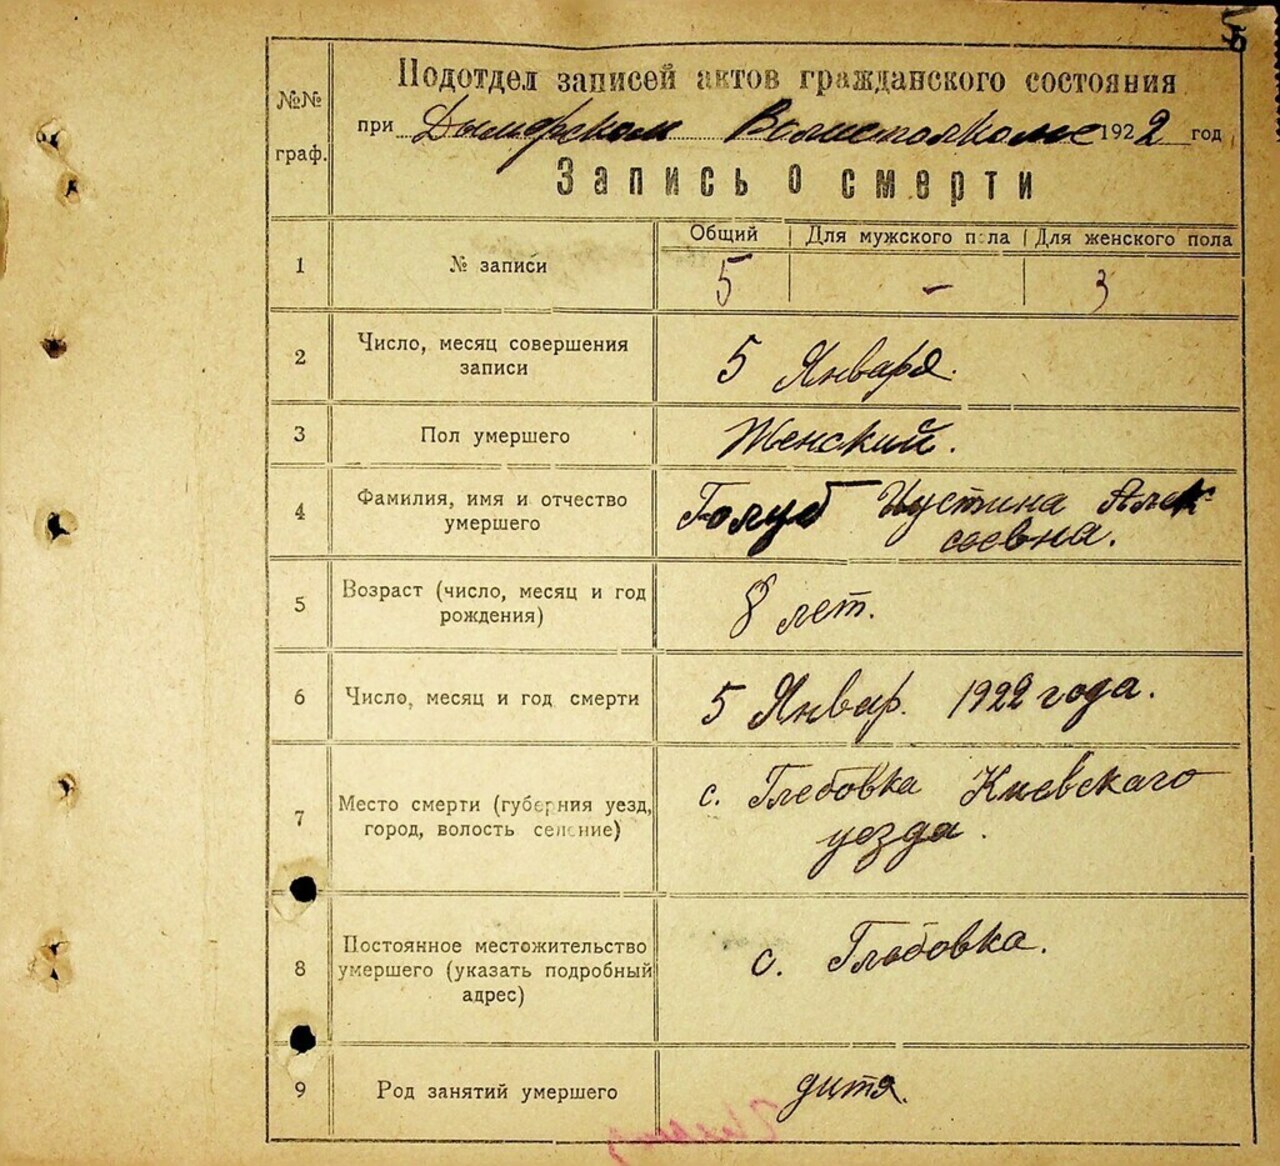 5
Подотдел записей актов гражданского состояния
№№ граф.
при Дымерском Волисполкоме 1922 год
Запись о смерти
Общий | Для мужского пола | Для женского пола
1 № записи 5 - 3
2 Число, месяц совершения записи 5 Января.
3 Пол умершего Женский.
4 Фамилия, имя и отчество умершего Голуб Иустина Алек
сеевна.
5 Возраст (число, месяц и год рождения) 8 лет.
6 Число, месяц и год смерти 5 Январ. 1922 года.
7 Место смерти (губерния уезд, город, волость селение) с. Глебовка Киевскаго
уезда.
8 Постоянное местожительство умершего (указать подробный адрес) с. Глебовка.
9 Род занятий умершего дитя.